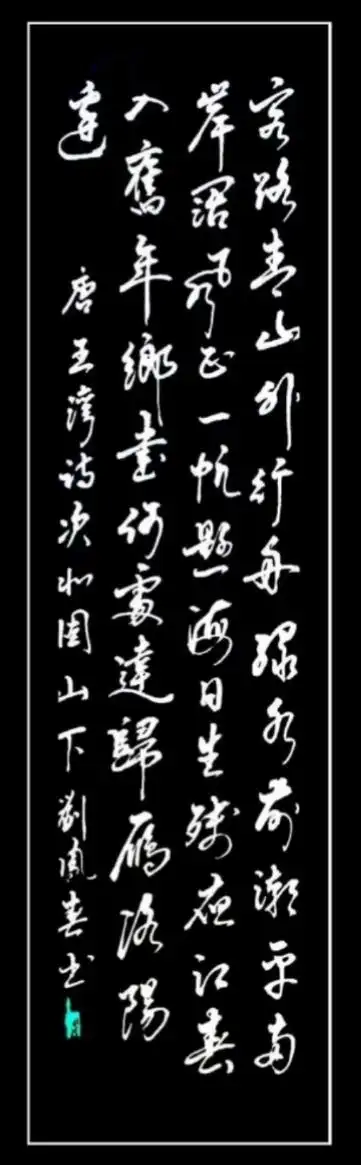 客路青山外行舟綠水前潮平兩
岸闊風正一帆懸海日生殘夜江春
入舊年鄉書何處達歸雁洛陽
邊
唐王灣詩次北固山下劉鳳春书